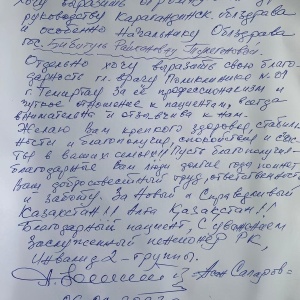 хочу выразить огромную
руководству Карагандинск. облздрава
и особенно Начальнику Облздрава
гос. Бибигуль
Отдельно хочу выразить свою благо-
дарность гл. врачу Поликлиники № 01
г. Темиртау за её профессионализм и
чуткое отношение к пациентам, всегда
внимательна и отзывчива к нам.
Желаю Вам крепкого здоровья, стабиль-
ности и благополучия, спокойствия и
в ваших семьях! Пусть
благодарные Вам люди долгие годы помнят
Ваш добросовестный труд, ответственность
и заботу. За Новый и Справедливый
Казахстан!! Алға Қазақстан!!
Благодарный пациент, с уважением
Заслуженный пенсионер РК,
Инвалид 2-группы.